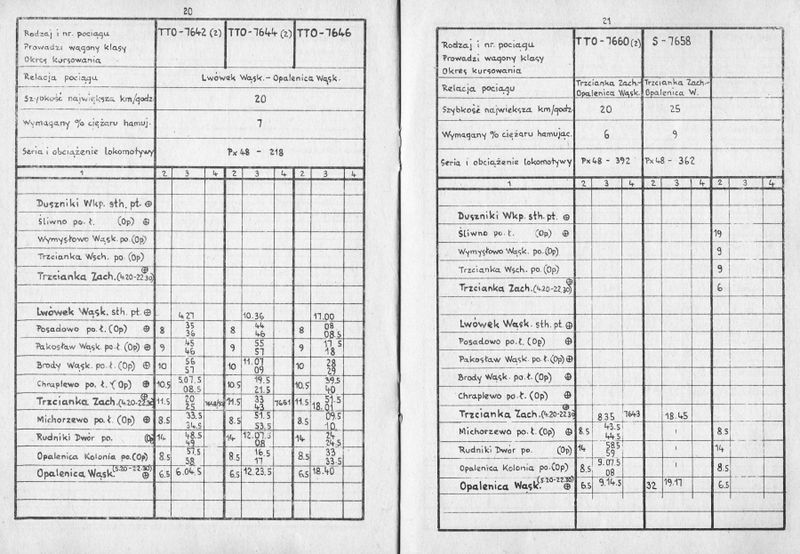 20
Rodzaj i nr. pociągu TTO-7642 (2) TTO-7644 (2) TTO-7646
Prowadzi wagony klasy
Okres kursowania
Relacja pociągu Lwówek Wąsk. - Opalenica Wąsk.
Szybkość największa km/godz 20
Wymagany % ciężaru hamuj. 7
Seria i obciążenie lokomotywy Px 48 - 218
1 2 3 4 2 3 4 2 3 4
Duszniki Wkp. sth. pt. ⊕
Śliwno po. ł. (Op) ⊕
Wymysłowo Wąsk. po. (Op)
Trzcianka Wsch. po. (Op)
Trzcianka Zach. (4.20-22.30) ⊕
Lwówek Wąsk. sth. pt. ⊕ 4.27 10.36 17.00
Posadowo po. ł. (Op) ⊕ 8 35 8 44 8 08
36 46 08.5
Pakosław Wąsk po. ł. (Op) ⊕ 9 45 9 55 9 17.5
46 57 18
Brody Wąsk. po. ł. (Op) ⊕ 10 56 10 11.07 10 28
57 09 29
Chraplewo po. ł. (Op) ⊕ 10.5 5.07.5 10.5 19.5 10.5 39.5
08.5 21.5 40
Trzcianka Zach. (4.20-22.30) ⊕ 11.5 20 11.5 33 7651 11.5 51.5
25 43 18.01
Michorzewo po. ł. (Op) ⊕ 8.5 33.5 8.5 51.5 8.5 09.5
34.5 53.5 10
Rudniki Dwór po. (Op) 14 48.5 14 12.07.5 14 24
49 08 24.5
Opalenica Kolonia po. (Op) 8.5 57.5 8.5 16.5 8.5 33
58 17 33.5
Opalenica Wąsk. (5.20-22.30) ⊕ 6.5 6.04.5 6.5 12.23.5 6.5 18.40
21
Rodzaj i nr. pociągu TTO-7660 (2) S-7658
Prowadzi wagony klasy
Okres kursowania
Relacja pociągu Trzcianka Zach.- Opalenica Wąsk. Trzcianka Zach- Opalenica W.
Szybkość największa km/godz 20 25
Wymagany % ciężaru hamując. 6 9
Seria i obciążenie lokomotywy Px 48 - 392 Px 48 - 362
1 2 3 4 2 3 4 2 3 4
Duszniki Wkp. sth. pt. ⊕
Śliwno po. ł. (Op) ⊕ 19
Wymysłowo Wąsk. po. (Op) 9
Trzcianka Wsch. po. (Op) 9
Trzcianka Zach. (4.20-22.30) ⊕ 6
Lwówek Wąsk. sth. pt. ⊕
Posadowo po. ł. (Op) ⊕
Pakosław Wąsk. po. ł. (Op) ⊕
Brody Wąsk. po. ł. (Op) ⊕
Chraplewo po. ł. (Op) ⊕
Trzcianka Zach. (4.20-22.30) ⊕ 8 35 7643 18.45
Michorzewo po. ł. (Op) ⊕ 8.5 43.5 ı 8.5
44.5
Rudniki Dwór po. (Op) 14 58.5 ı 14
59
Opalenica Kolonia po. (Op) 8.5 9.07.5 ı 8.5
08
Opalenica Wąsk. (5.20-22.30) ⊕ 6.5 9.14.5 32 19.17 6.5